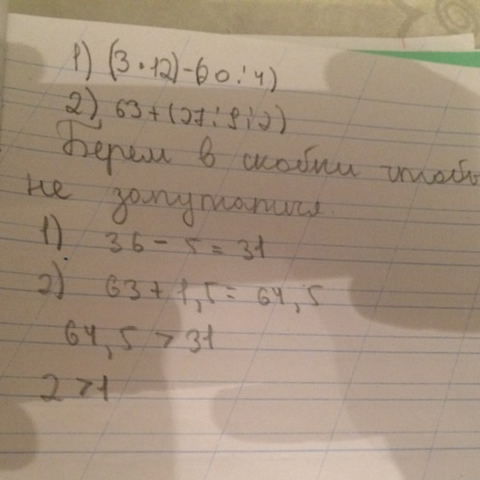 1) (3 • 12) - (0 : 4)
2) 63 + (27 : 9 : 2)
Берем в скобки чтобы
не запутаться.
1) 36 - 5 = 31
2) 63 + 1,5 = 64,5
64,5 > 31
2 > 1